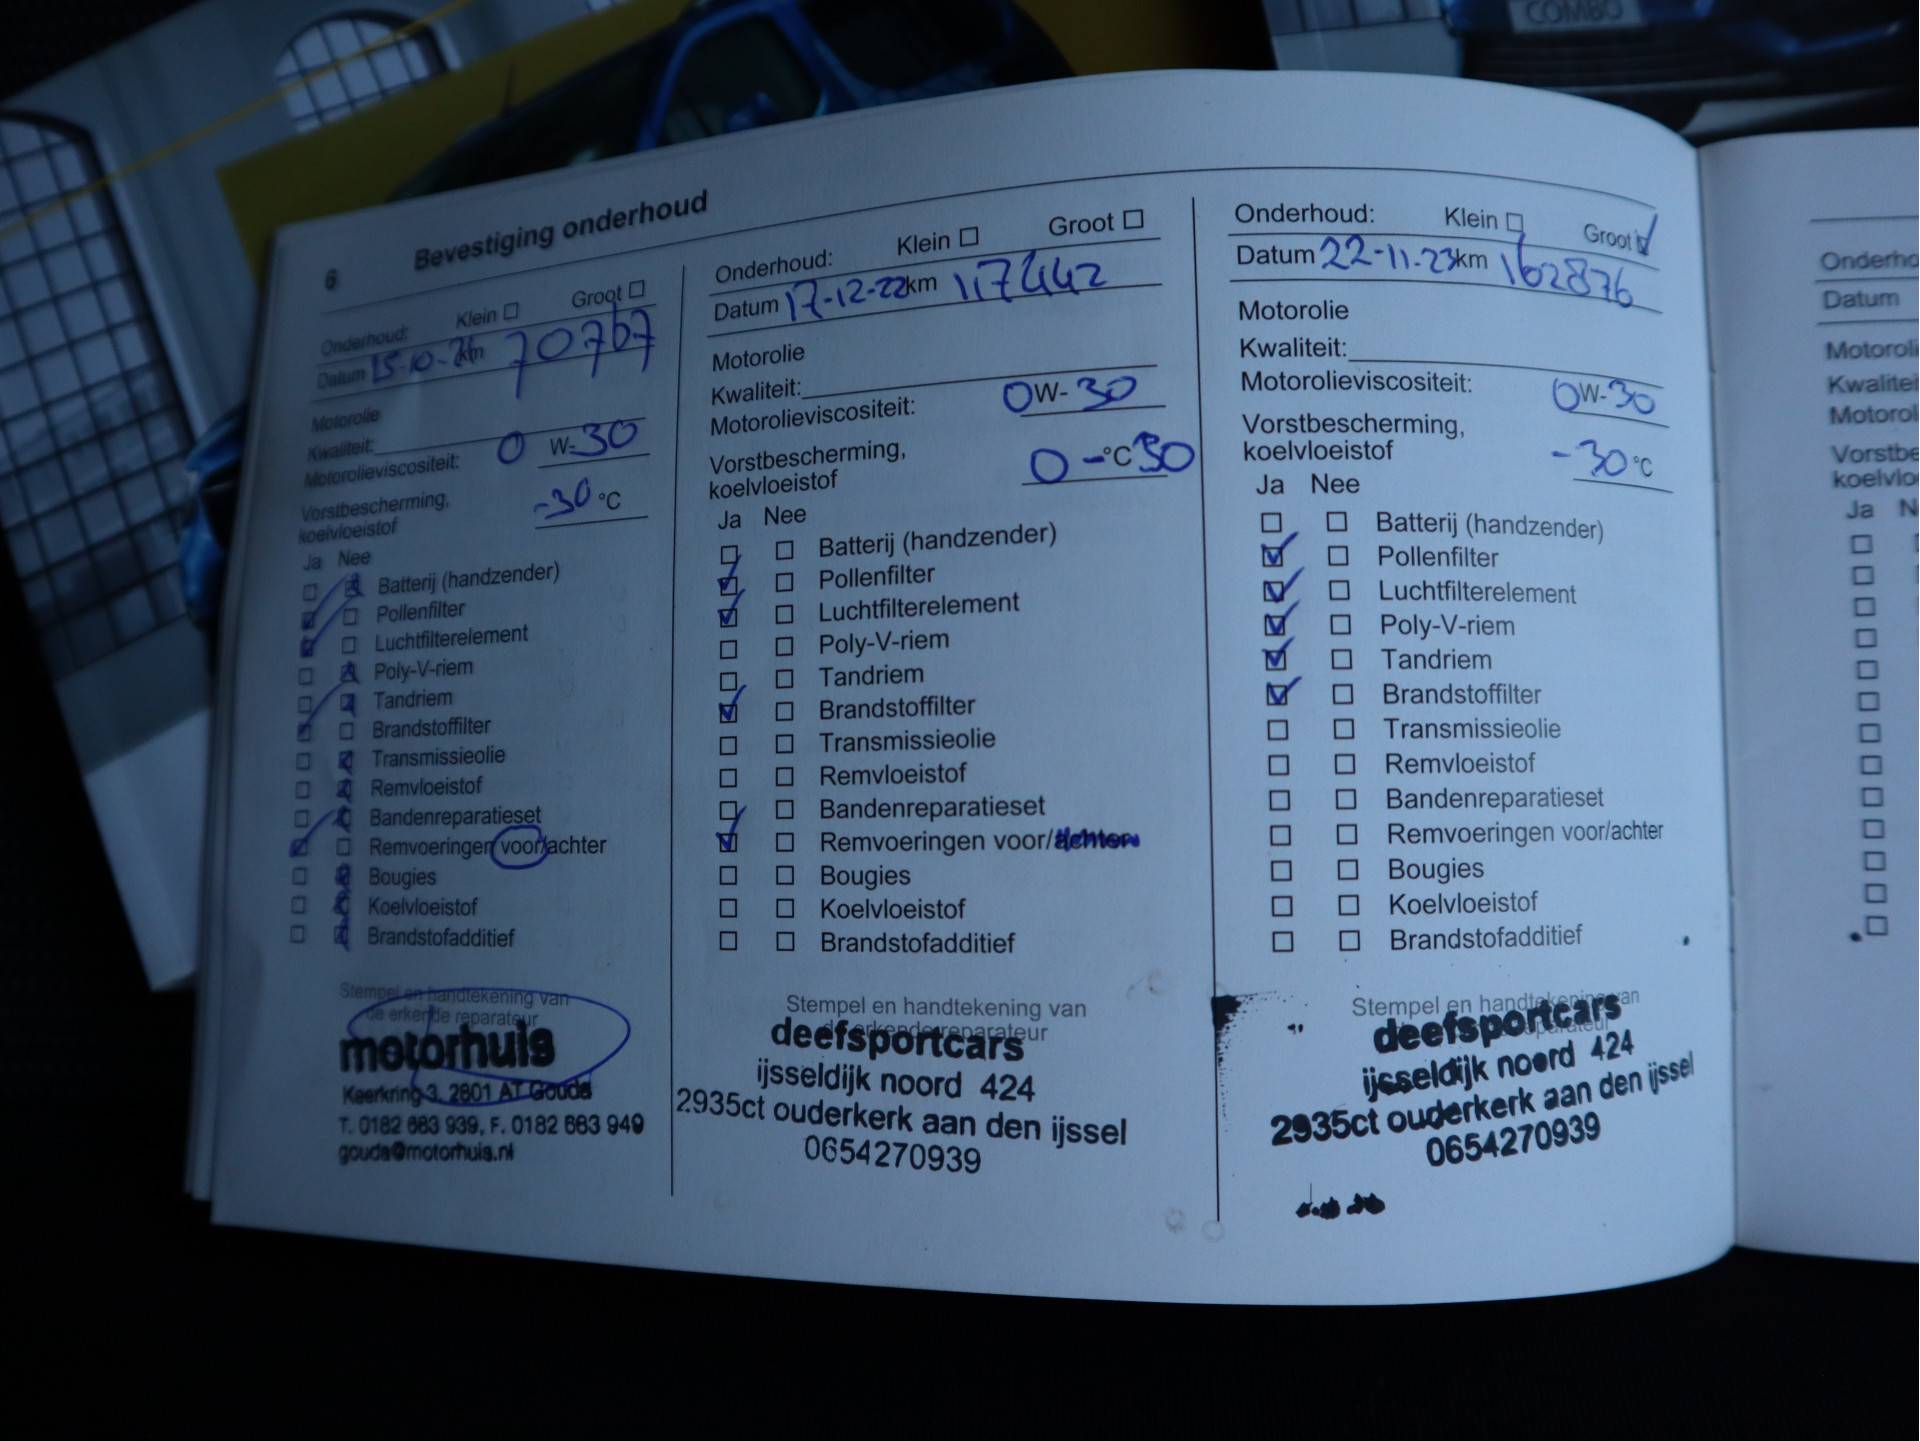 COMBO
6
Bevestiging onderhoud
Onderhoud: Klein Groot
Datum 15-10-21 km 70767
Motorolie
Kwaliteit:
Motorolieviscositeit: 0 W-30
Vorstbescherming,
koelvloeistof -30 °C
Ja Nee
Batterij (handzender)
Pollenfilter
Luchtfilterelement
Poly-V-riem
Tandriem
Brandstoffilter
Transmissieolie
Remvloeistof
Bandenreparatieset
Remvoeringen voor/achter
Bougies
Koelvloeistof
Brandstofadditief
Stempel en handtekening van
de erkende reparateur
motorhuis
Keerkring 3, 2801 AT Gouda
T. 0182 683 939, F. 0182 683 949
gouda@motorhuis.nl
Onderhoud: Klein Groot
Datum 17-12-22 km 117442
Motorolie
Kwaliteit:
Motorolieviscositeit: 0W-30
Vorstbescherming,
koelvloeistof 0 -°C 30
Ja Nee
Batterij (handzender)
Pollenfilter
Luchtfilterelement
Poly-V-riem
Tandriem
Brandstoffilter
Transmissieolie
Remvloeistof
Bandenreparatieset
Remvoeringen voor/achter
Bougies
Koelvloeistof
Brandstofadditief
Stempel en handtekening van
de erkende reparateur
deefsportcars
ijsseldijk noord 424
2935ct ouderkerk aan den ijssel
0654270939
Onderhoud: Klein Groot
Datum 22-11-23 km 162876
Motorolie
Kwaliteit:
Motorolieviscositeit: 0W-30
Vorstbescherming,
koelvloeistof -30 °C
Ja Nee
Batterij (handzender)
Pollenfilter
Luchtfilterelement
Poly-V-riem
Tandriem
Brandstoffilter
Transmissieolie
Remvloeistof
Bandenreparatieset
Remvoeringen voor/achter
Bougies
Koelvloeistof
Brandstofadditief
Stempel en handtekening van
deefsportcars
ijsseldijk noord 424
2935ct ouderkerk aan den ijssel
0654270939
Onderho
Datum
Motoroli
Kwaliteit
Motorol
Vorstbe
koelvloe
Ja N